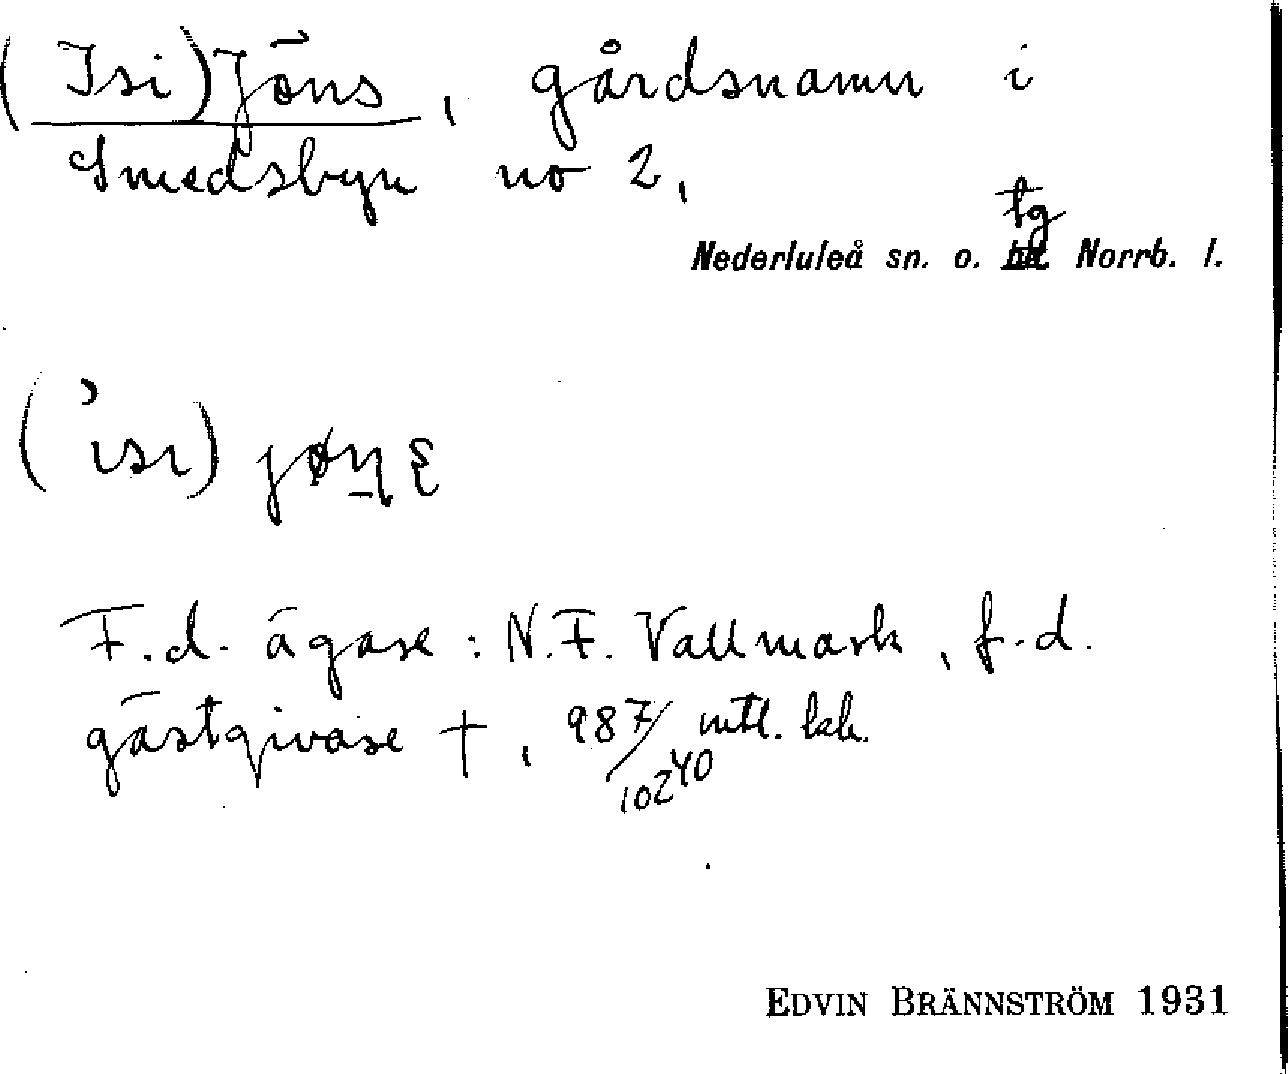 (Isi)Jöns, gårdsnamn i
Smedsbyn no 2,
tg
Nederluleå sn. o. Norrb. l.
F.d. ägare: N.F. Vallmark, f.d.
gästgivare †, 987/10240 mtl. kh.
EDVIN BRÄNNSTRÖM 1931